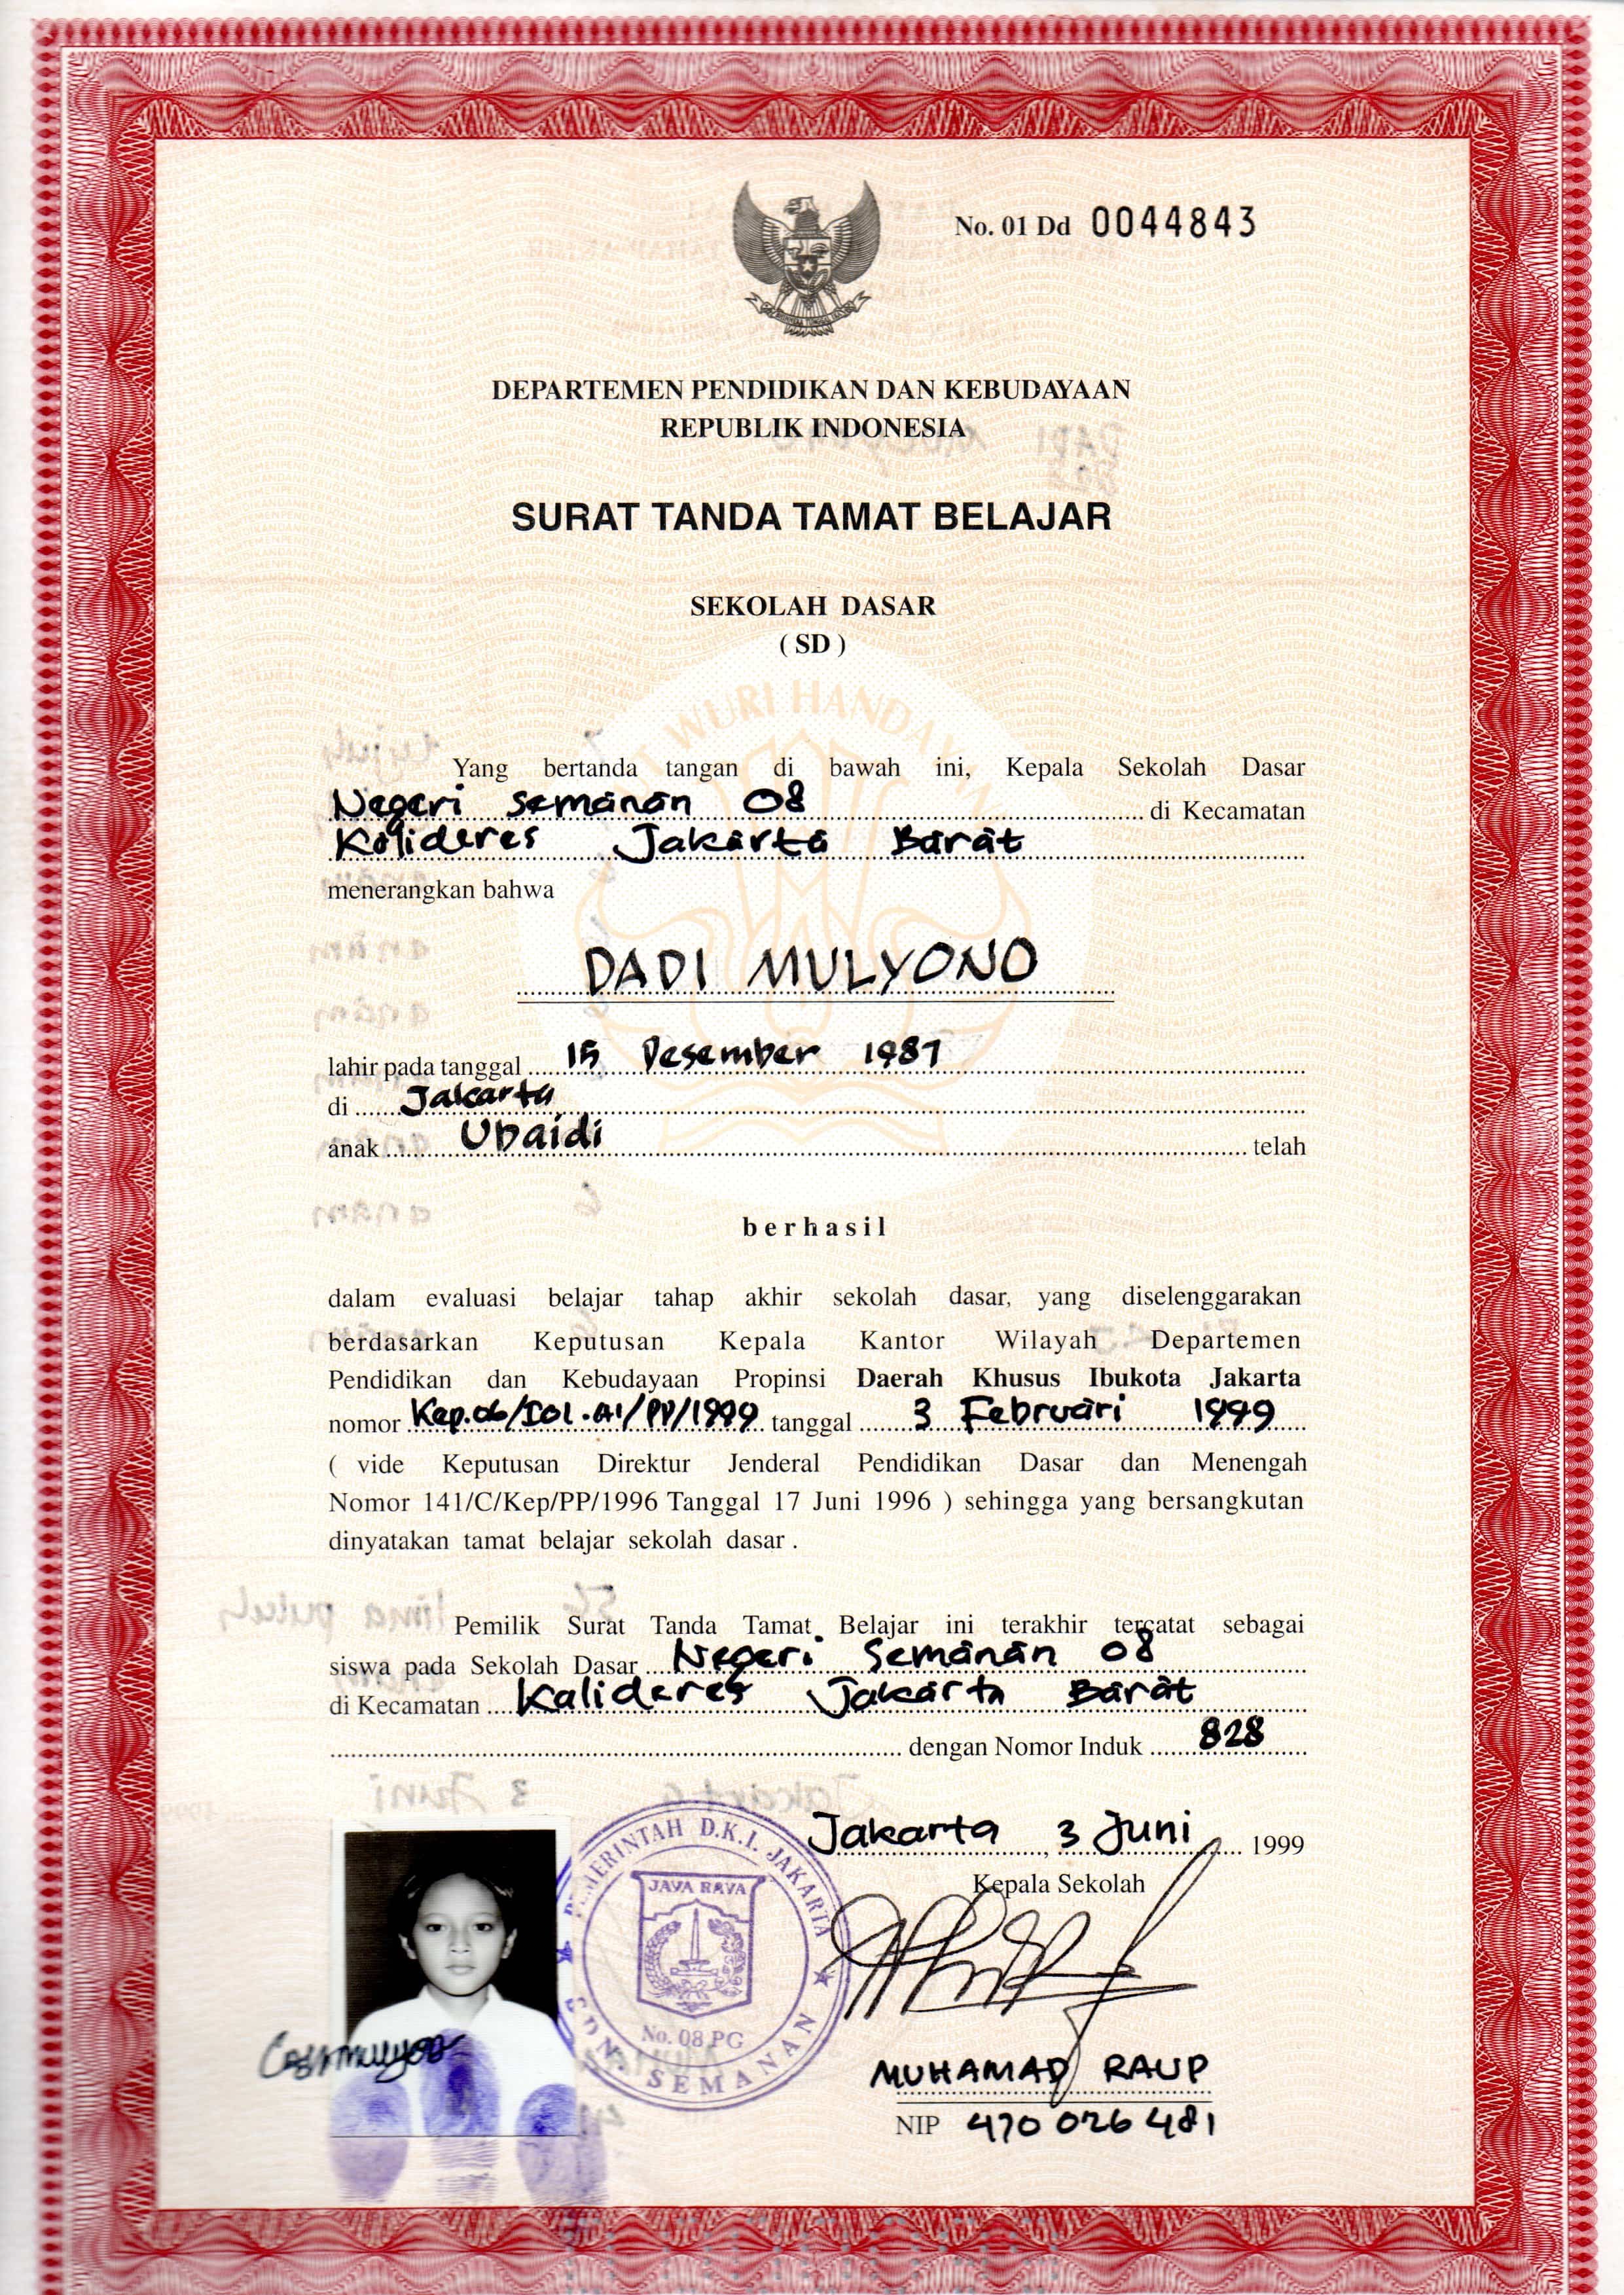 No. 01 Dd 0044843
DEPARTEMEN PENDIDIKAN DAN KEBUDAYAAN
REPUBLIK INDONESIA
SURAT TANDA TAMAT BELAJAR
SEKOLAH DASAR
( SD )
Yang bertanda tangan di bawah ini, Kepala Sekolah Dasar
Negeri Semanan 08 di Kecamatan
Kalideres Jakarta Barat
menerangkan bahwa
DADI MULYONO
lahir pada tanggal 15 Desember 1987
di Jakarta
anak Ubaidi telah
berhasil
dalam evaluasi belajar tahap akhir sekolah dasar, yang diselenggarakan
berdasarkan Keputusan Kepala Kantor Wilayah Departemen
Pendidikan dan Kebudayaan Propinsi Daerah Khusus Ibukota Jakarta
nomor Kep.06/I01.A1/PP/1999 tanggal 3 Februari 1999
( vide Keputusan Direktur Jenderal Pendidikan Dasar dan Menengah
Nomor 141/C/Kep/PP/1996 Tanggal 17 Juni 1996 ) sehingga yang bersangkutan
dinyatakan tamat belajar sekolah dasar .
Pemilik Surat Tanda Tamat Belajar ini terakhir tercatat sebagai
siswa pada Sekolah Dasar Negeri Semanan 08
di Kecamatan Kalideres Jakarta Barat
dengan Nomor Induk 828
Jakarta, 3 Juni 1999
Kepala Sekolah
PEMERINTAH D.K.I. JAKARTA
JAYA RAYA
No. 08 PG
SDN. SEMANAN
MUHAMAD RAUP
NIP 470 026 481